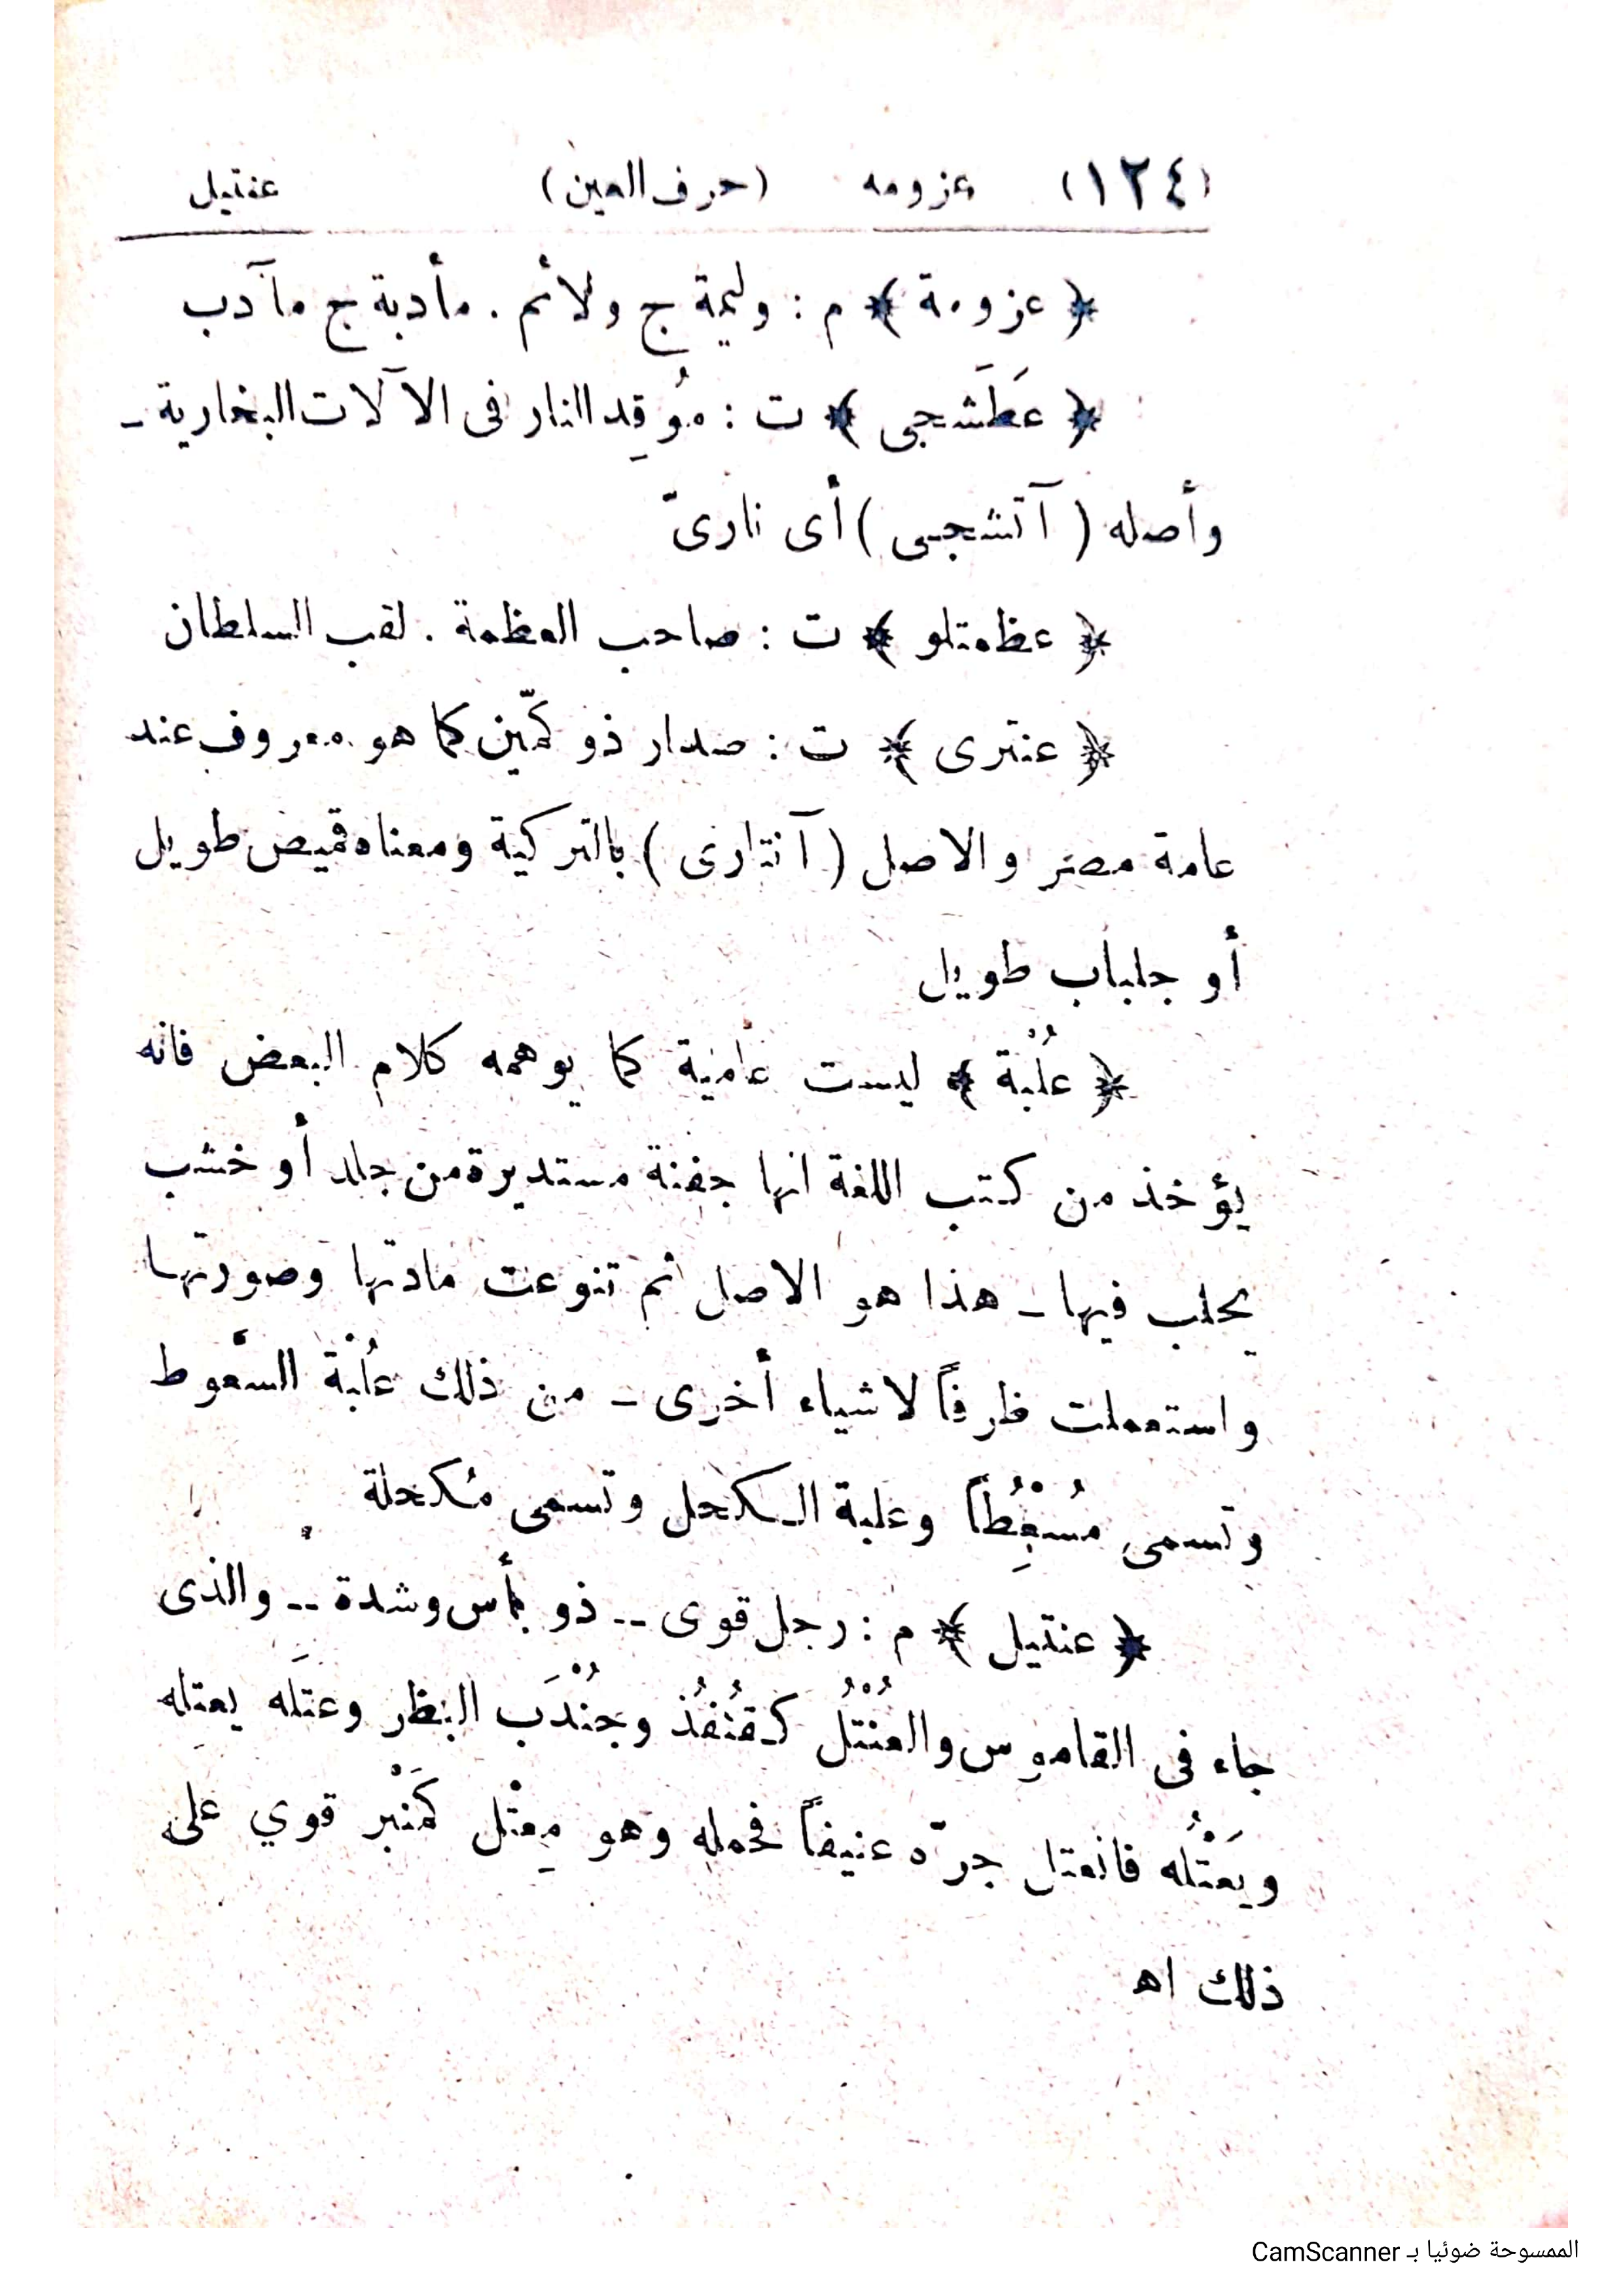 (١٢٤) عزومه (حرف العين) عنتيل
﴿ عزومة ﴾ م : وليمة ج ولائم . مأدبة ج مآدب
﴿ عَطَشجى ﴾ ت : مُوقِد النار فى الآلات البخارية –
وأصله ( آتشجى ) أى نارىّ
﴿ عظمتلو ﴾ ت : صاحب العظمة . لقب السلطان
﴿ عنترى ﴾ ت : صدار ذو كمّين كما هو معروف عند
عامة مصر والاصل ( آنتارى ) بالتركية ومعناه قميص طويل
أو جلباب طويل
﴿ عُلْبة ﴾ ليست عامية كما يوهمه كلام البعض فانه
يؤخذ من كتب اللغة انها جفنة مستديرة من جلد أو خشب
يحلب فيها – هذا هو الاصل ثم تنوعت مادتها وصورتها
واستعملت ظرفاً لاشياء أخرى – من ذلك عُلْبة السَّعوط
وتسمى مُسْعُِطاً وعلبة الكحل وتسمى مُكحلة
﴿ عنتيل ﴾ م : رجل قوى -- ذو بأس وشدة -- والذى
جاء فى القاموس والعُنْتُلُ كقُنْفُذ وجُنْدَب البظر وعتَله يعتِله
ويَعْتُله فانعتل جرّه عنيفاً فحمله وهو مِعْتَل كَمِنْبر قوي على
ذلك اه
الممسوحة ضوئيا بـ CamScanner